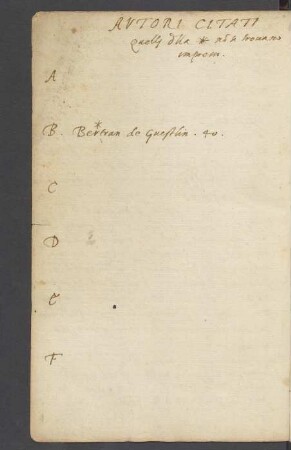 AVTORI CITATI
Quelli d'una * nõ si trovano
impressi.
A
B. Bertran de Guesclin. 40.
*
C
D
E
F